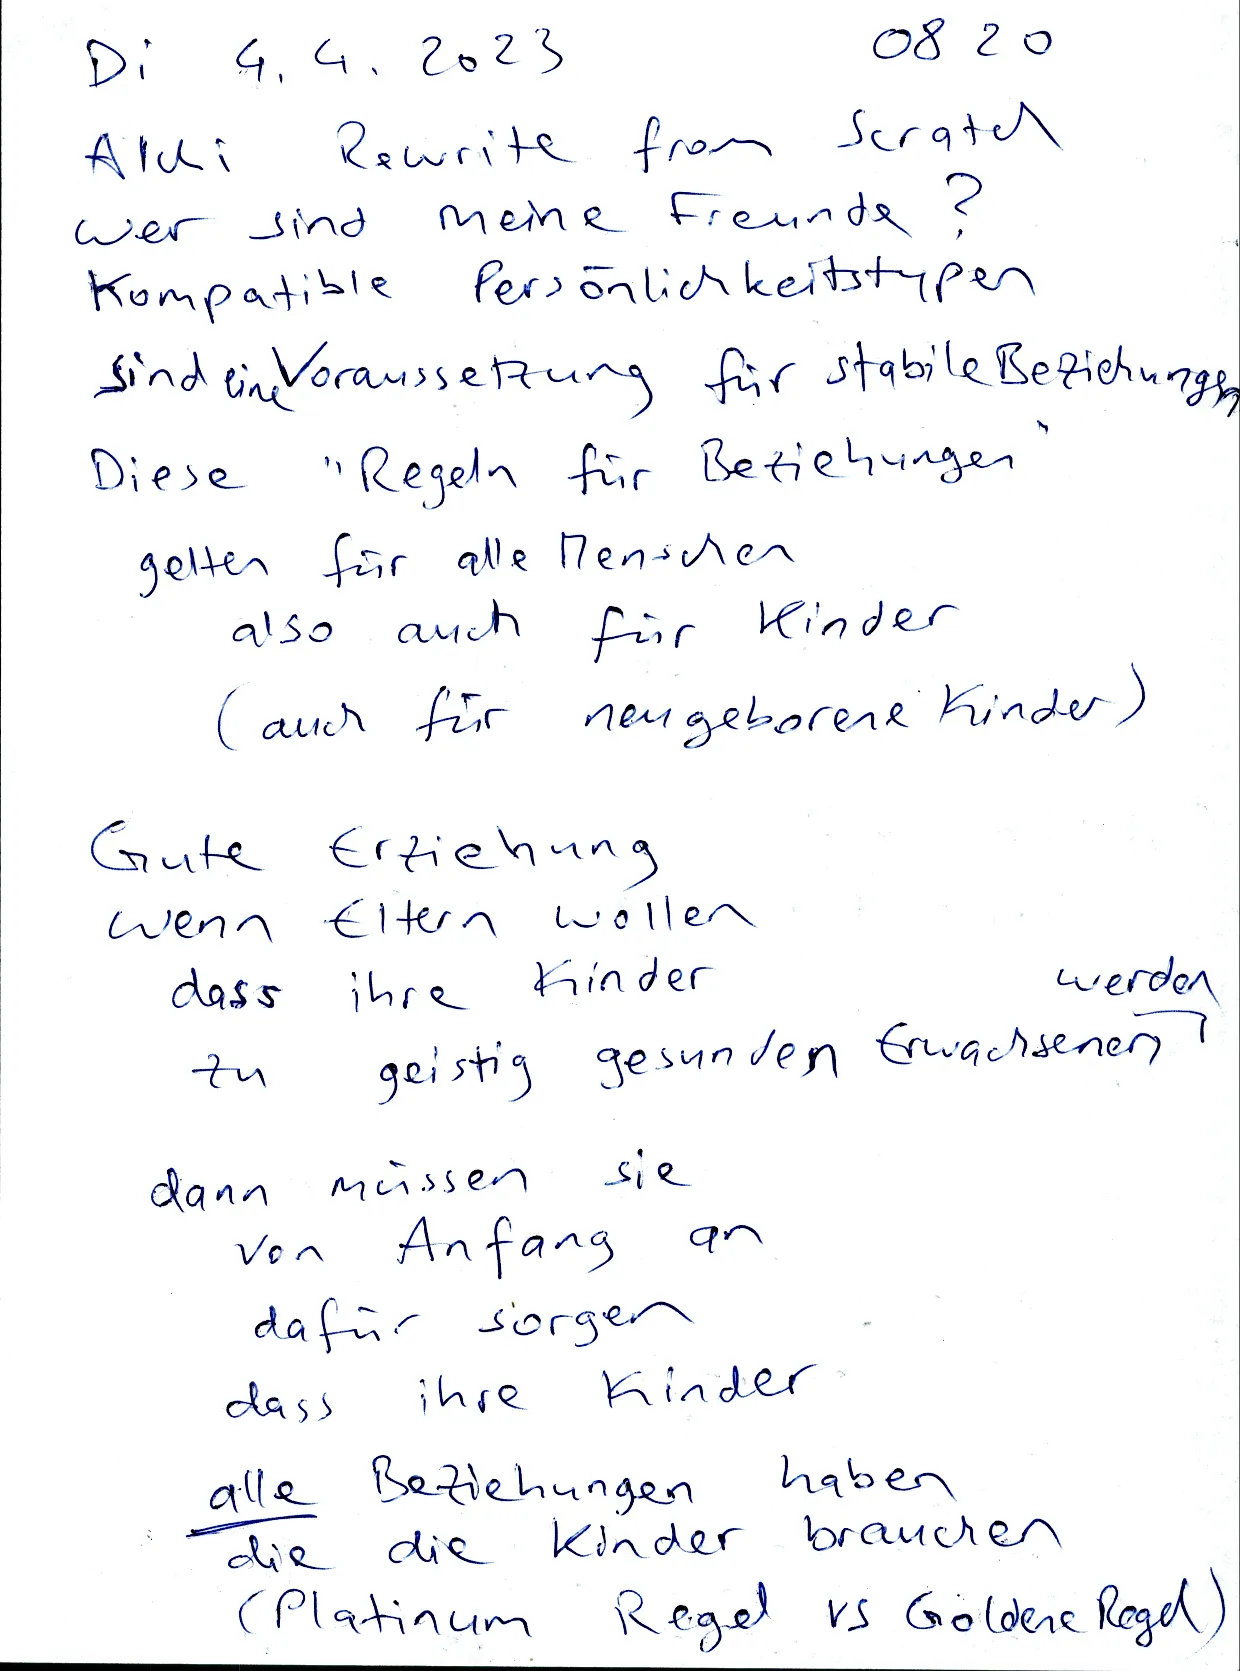 Di 4.4.2023 0820
Alchi Rewrite from Scratch
wer sind meine Freunde?
Kompatible Persönlichkeitstypen
sind eine Voraussetzung für stabile Beziehungen
Diese "Regeln für Beziehungen"
gelten für alle Menschen
also auch für Kinder
(auch für neugeborene Kinder)
Gute Erziehung
wenn Eltern wollen
dass ihre Kinder
zu geistig gesunden Erwachsenen werden
dann müssen sie
von Anfang an
dafür sorgen
dass ihre Kinder
alle Beziehungen haben
die die Kinder brauchen
(Platinum Regel vs Goldene Regel)